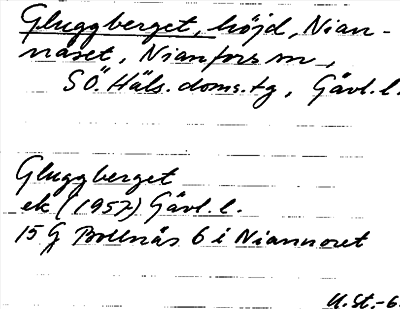 Gluggberget, höjd, Nian-
naset, Nianfors sn,
SÖ. Häls. doms.tg, Gävl. l.
Gluggberget
ek (1957) Gävl. l.
15 G Bollnäs 6 i Niannoret
U.St.-6